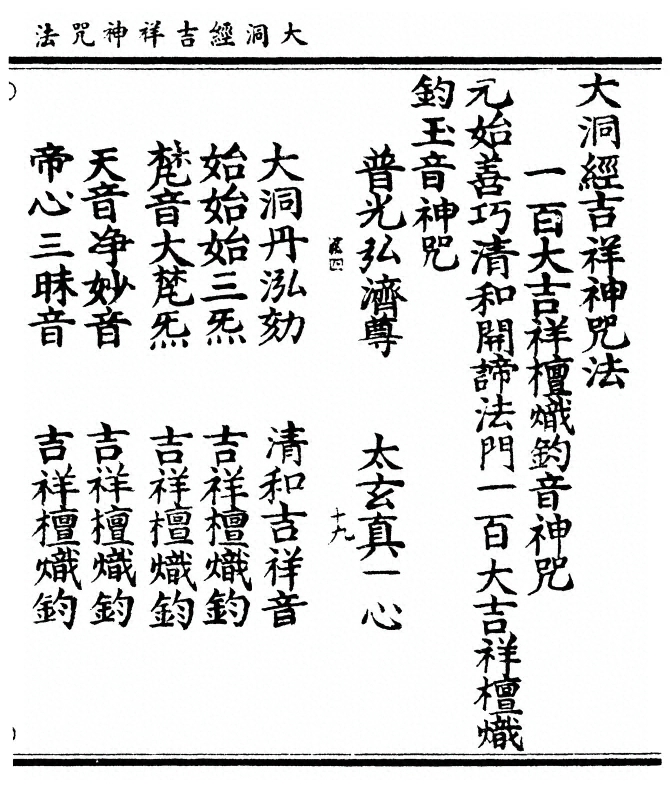 大洞經吉祥神咒法
大洞經吉祥神咒法
一百大吉祥檀熾鈞音神咒
元始善巧清和開諦法門一百大吉祥檀熾
鈞玉音神咒
普光弘濟尊 太玄真一心
四 十九
大洞丹泓効 清和吉祥音
始始始三炁 吉祥檀熾鈞
梵音大梵炁 吉祥檀熾鈞
天音净妙音 吉祥檀熾鈞
帝心三昧音 吉祥檀熾鈞